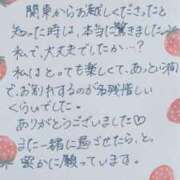 関東からお越しくださったと
知った時は、本当に驚きました
私で、大丈夫でしたか…?
私はとっても楽しくて、あっとい間で
お別れするのが名残惜しい
くらいでした。
ありがとうございました♡
また一緒に過ごせたら、と
密かに願っています。